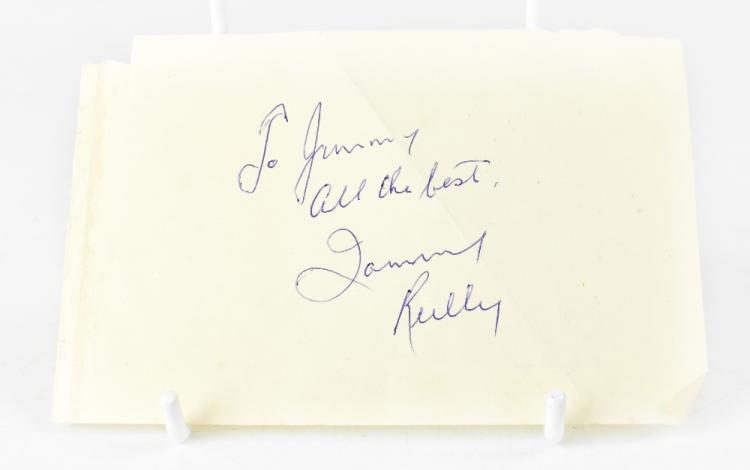 To Jimmy
all the best,
Tommy
Reilly